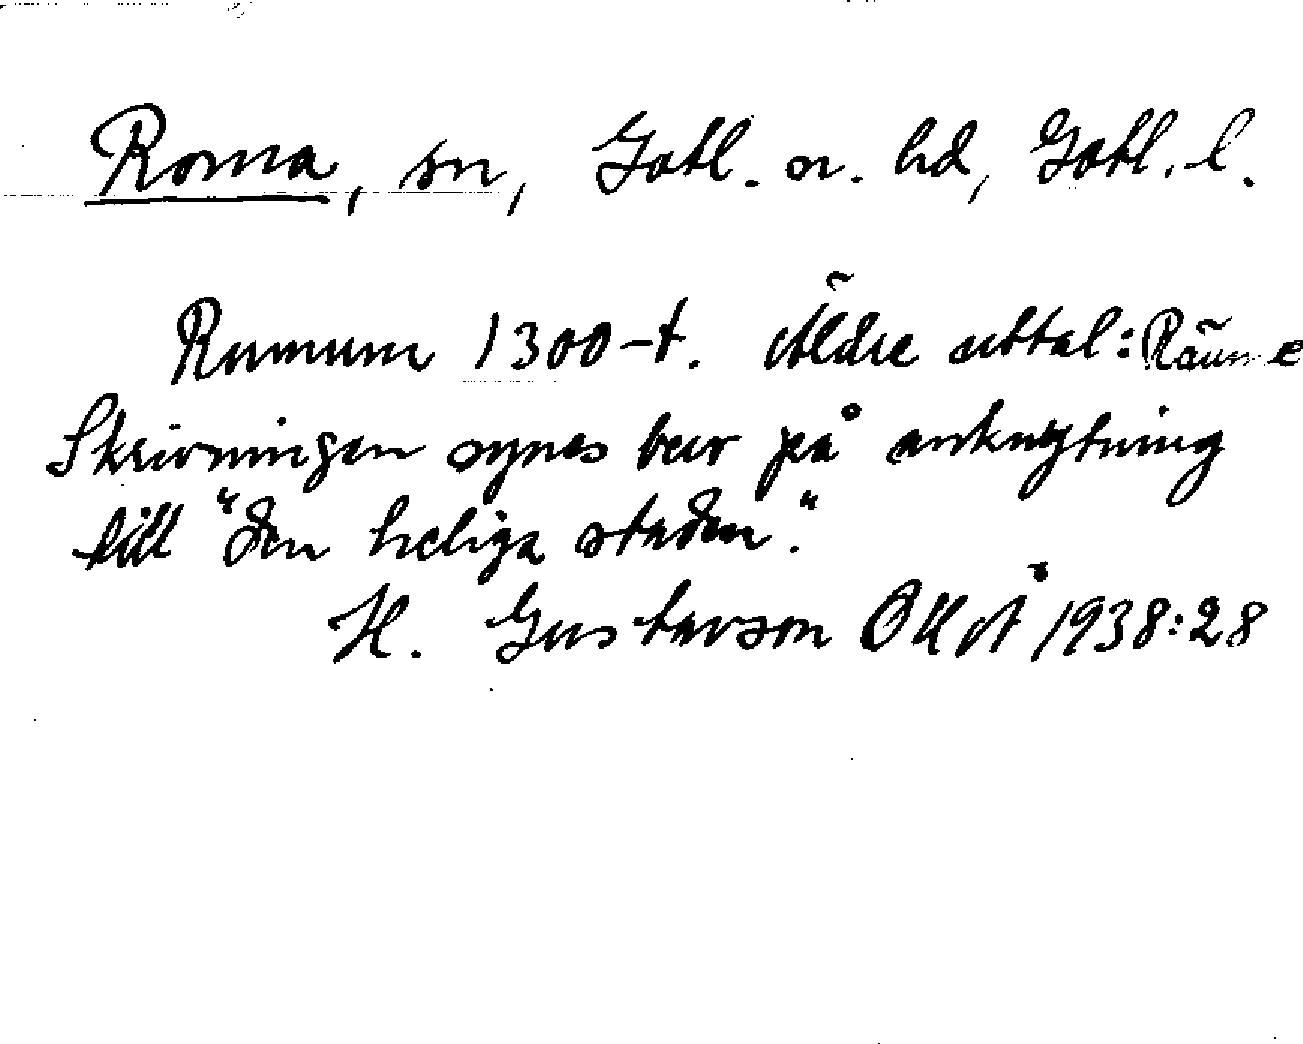 Roma, sn, Gotl. n. hd, Gotl. l.
Rumum 1300-t. Äldre uttal: Räume
Skrivningen synes bero på anknytning
till "den heliga staden".
H. Gustavson ÖKoÅ 1938:28